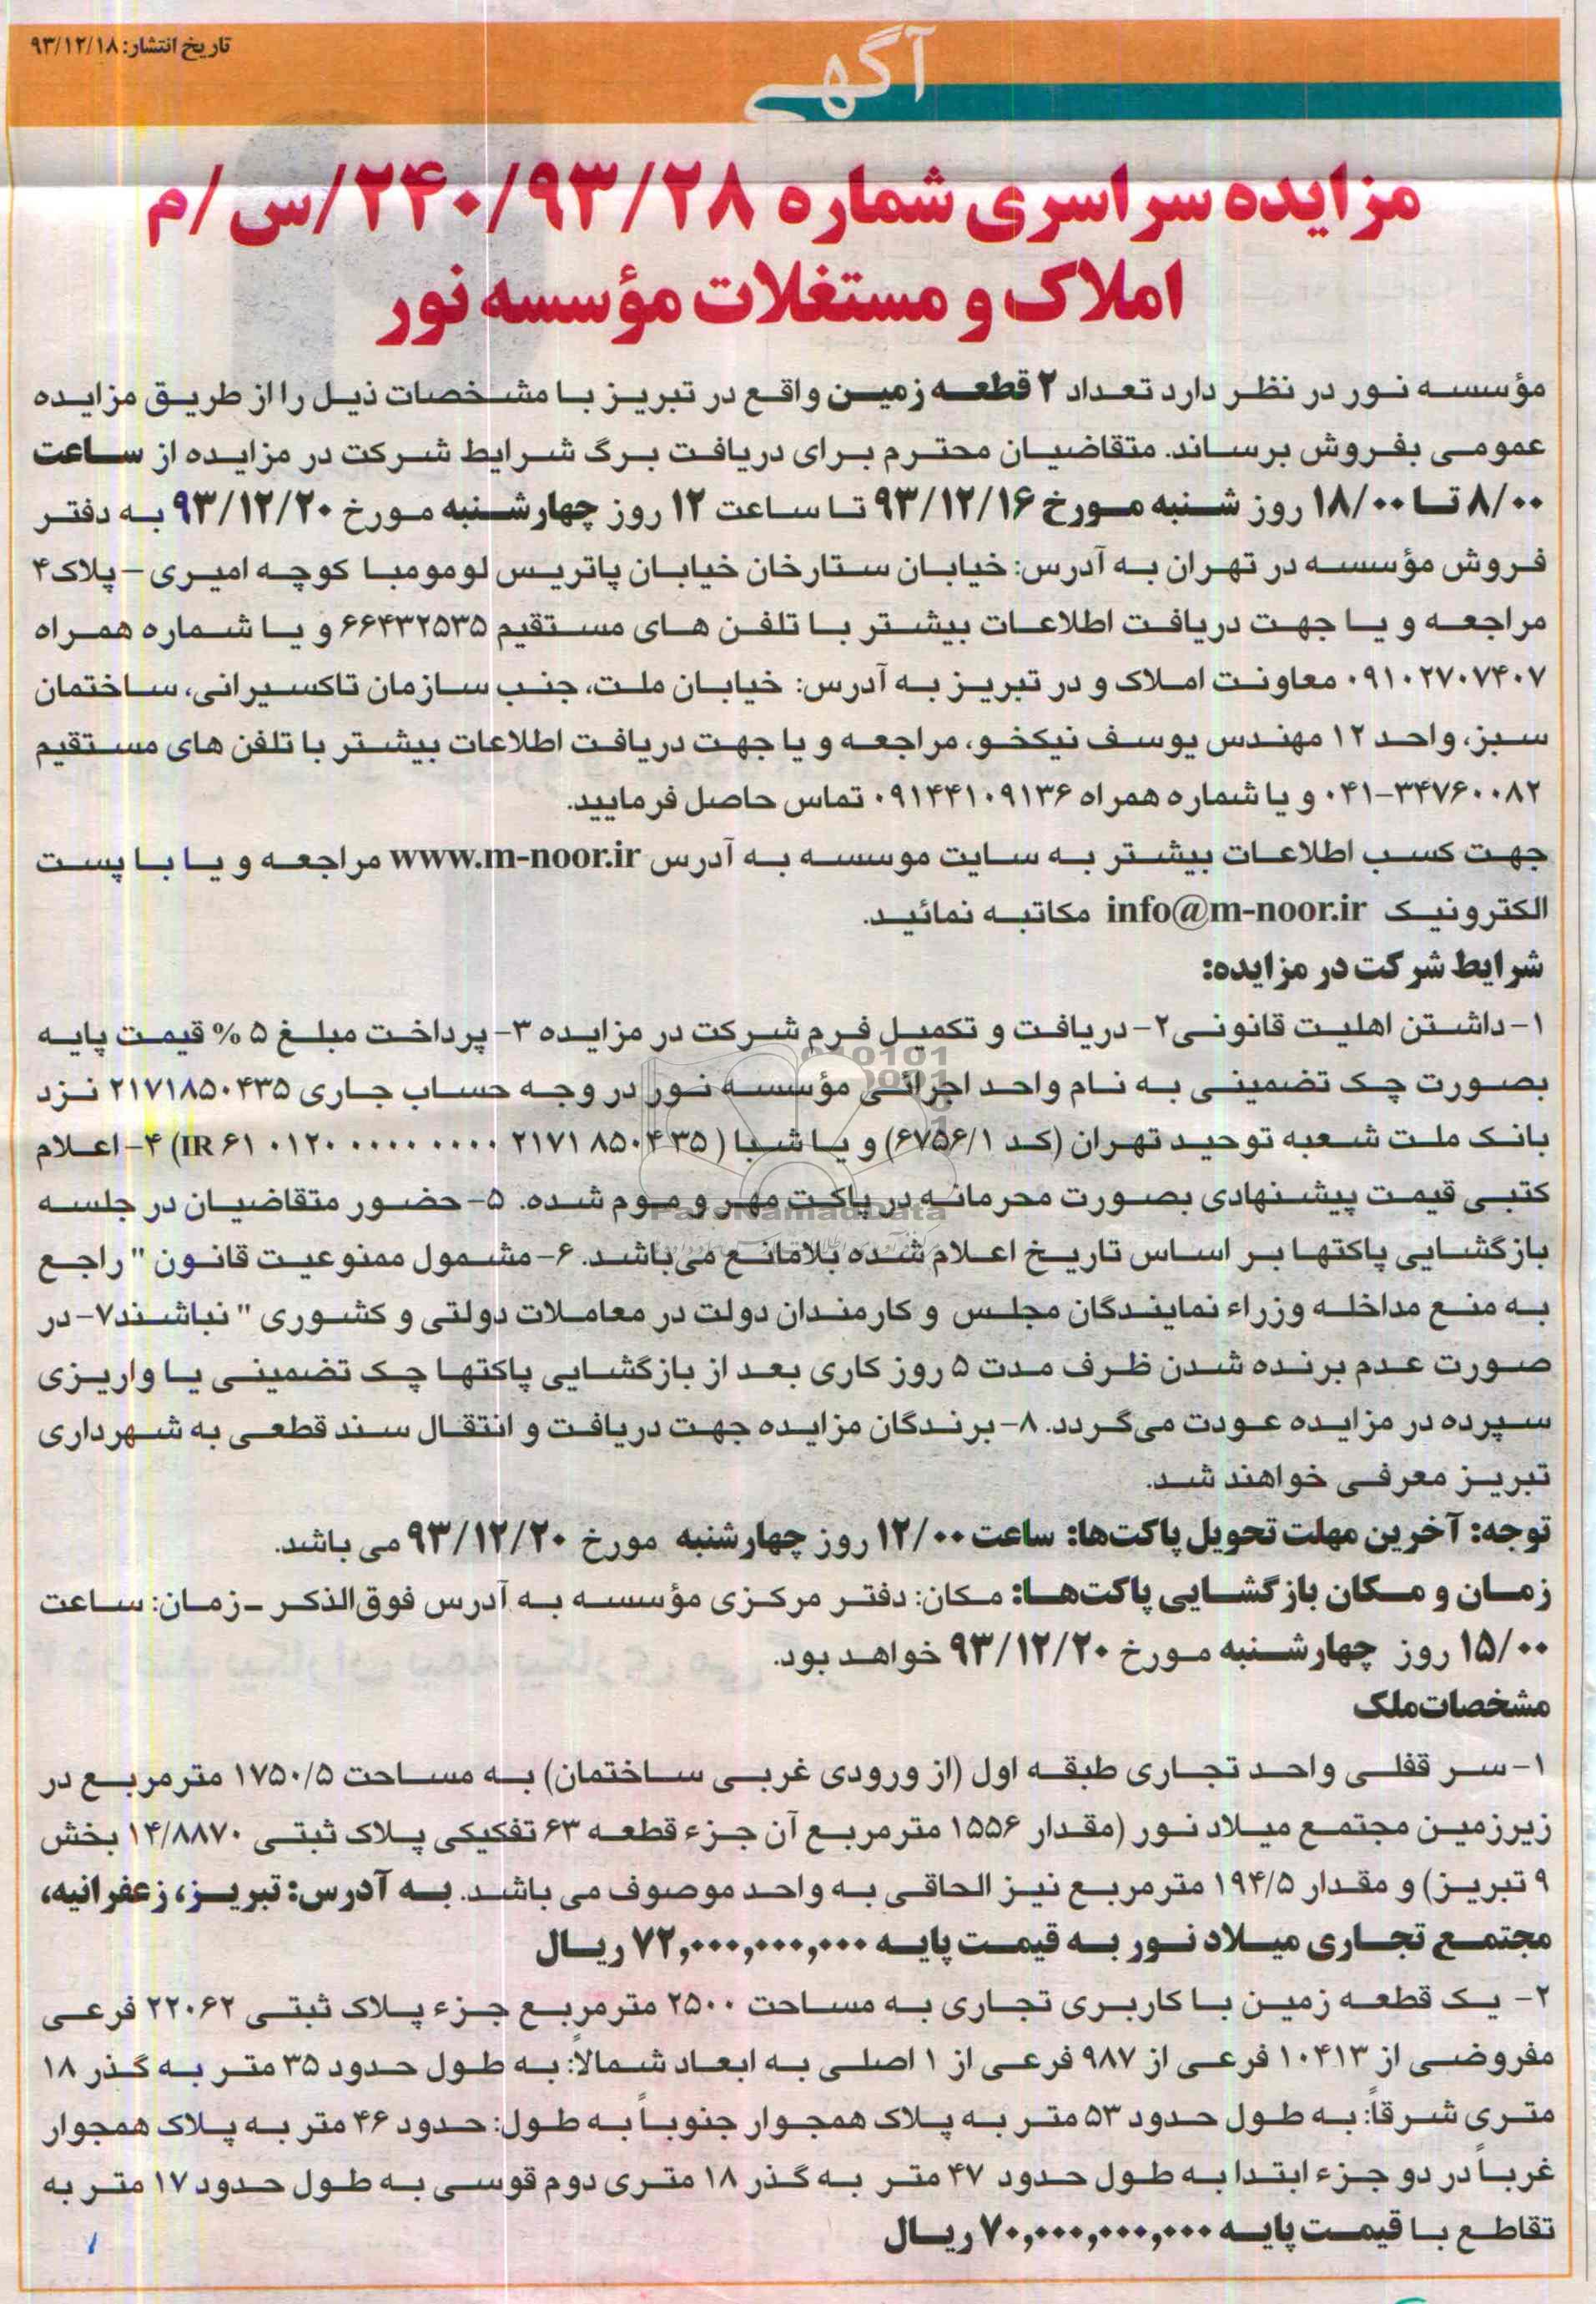 تاریخ انتشار: ۹۳/۱۲/۱۸
آگهی
مزایده سراسری شماره ۲۴۰/۹۳/۲۸/س/م
املاک و مستغلات مؤسسه نور
مؤسسه نور در نظر دارد تعداد ۲ قطعه زمین واقع در تبریز با مشخصات ذیل را از طریق مزایده
عمومی بفروش برساند. متقاضیان محترم برای دریافت برگ شرایط شرکت در مزایده از ساعت
۸/۰۰ تا ۱۸/۰۰ روز شنبه مورخ ۹۳/۱۲/۱۶ تا ساعت ۱۲ روز چهارشنبه مورخ ۹۳/۱۲/۲۰ به دفتر
فروش مؤسسه در تهران به آدرس: خیابان ستارخان خیابان پاتریس لومومبا کوچه امیری - پلاک ۴
مراجعه و یا جهت دریافت اطلاعات بیشتر با تلفن های مستقیم ۶۶۴۳۲۵۳۵ و یا شماره همراه
۰۹۱۰۲۷۰۷۴۰۷ معاونت املاک و در تبریز به آدرس: خیابان ملت، جنب سازمان تاکسیرانی، ساختمان
سبز، واحد ۱۲ مهندس یوسف نیکخو، مراجعه و یا جهت دریافت اطلاعات بیشتر با تلفن های مستقیم
۰۴۱-۳۴۷۶۰۰۸۲ و یا شماره همراه ۰۹۱۴۴۱۰۹۱۳۶ تماس حاصل فرمایید.
جهت کسب اطلاعات بیشتر به سایت موسسه به آدرس www.m-noor.ir مراجعه و یا با پست
الکترونیک info@m-noor.ir مکاتبه نمائید.
شرایط شرکت در مزایده:
۱- داشتن اهلیت قانونی ۲- دریافت و تکمیل فرم شرکت در مزایده ۳- پرداخت مبلغ ۵ % قیمت پایه
بصورت چک تضمینی به نام واحد اجرائی مؤسسه نور در وجه حساب جاری ۲۱۷۱۸۵۰۴۳۵ نزد
بانک ملت شعبه توحید تهران (کد ۶۷۵۶/۱) و یا شبا (IR ۶۱ ۰۱۲۰ ۰۰۰۰ ۰۰۰۰ ۲۱۷۱ ۸۵۰۴ ۳۵) ۴- اعلام
کتبی قیمت پیشنهادی بصورت محرمانه در پاکت مهر و موم شده. ۵- حضور متقاضیان در جلسه
بازگشایی پاکتها بر اساس تاریخ اعلام شده بلامانع می‌باشد. ۶- مشمول ممنوعیت قانون " راجع
به منع مداخله وزراء نمایندگان مجلس و کارمندان دولت در معاملات دولتی و کشوری " نباشند ۷- در
صورت عدم برنده شدن ظرف مدت ۵ روز کاری بعد از بازگشایی پاکتها چک تضمینی یا واریزی
سپرده در مزایده عودت می‌گردد. ۸- برندگان مزایده جهت دریافت و انتقال سند قطعی به شهرداری
تبریز معرفی خواهند شد.
توجه: آخرین مهلت تحویل پاکت‌ها: ساعت ۱۲/۰۰ روز چهارشنبه مورخ ۹۳/۱۲/۲۰ می باشد.
زمان و مکان بازگشایی پاکت‌ها: مکان: دفتر مرکزی مؤسسه به آدرس فوق‌الذکر - زمان: ساعت
۱۵/۰۰ روز چهارشنبه مورخ ۹۳/۱۲/۲۰ خواهد بود.
مشخصات ملک
۱- سر قفلی واحد تجاری طبقه اول (از ورودی غربی ساختمان) به مساحت ۱۷۵۰/۵ مترمربع در
زیرزمین مجتمع میلاد نور (مقدار ۱۵۵۶ مترمربع آن جزء قطعه ۶۳ تفکیکی پلاک ثبتی ۱۴/۸۸۷۰ بخش
۹ تبریز) و مقدار ۱۹۴/۵ مترمربع نیز الحاقی به واحد موصوف می باشد. به آدرس: تبریز، زعفرانیه،
مجتمع تجاری میلاد نور به قیمت پایه ۷۲,۰۰۰,۰۰۰,۰۰۰ ریال
۲- یک قطعه زمین با کاربری تجاری به مساحت ۲۵۰۰ مترمربع جزء پلاک ثبتی ۲۲۰۶۲ فرعی
مفروضی از ۱۰۴۱۳ فرعی از ۹۸۷ فرعی از ۱ اصلی به ابعاد شمالاً: به طول حدود ۳۵ متر به گذر ۱۸
متری شرقاً: به طول حدود ۵۳ متر به پلاک همجوار جنوباً به طول: حدود ۴۶ متر به پلاک همجوار
غرباً در دو جزء ابتدا به طول حدود ۴۷ متر به گذر ۱۸ متری دوم قوسی به طول حدود ۱۷ متر به
تقاطع با قیمت پایه ۷۰,۰۰۰,۰۰۰,۰۰۰ ریال